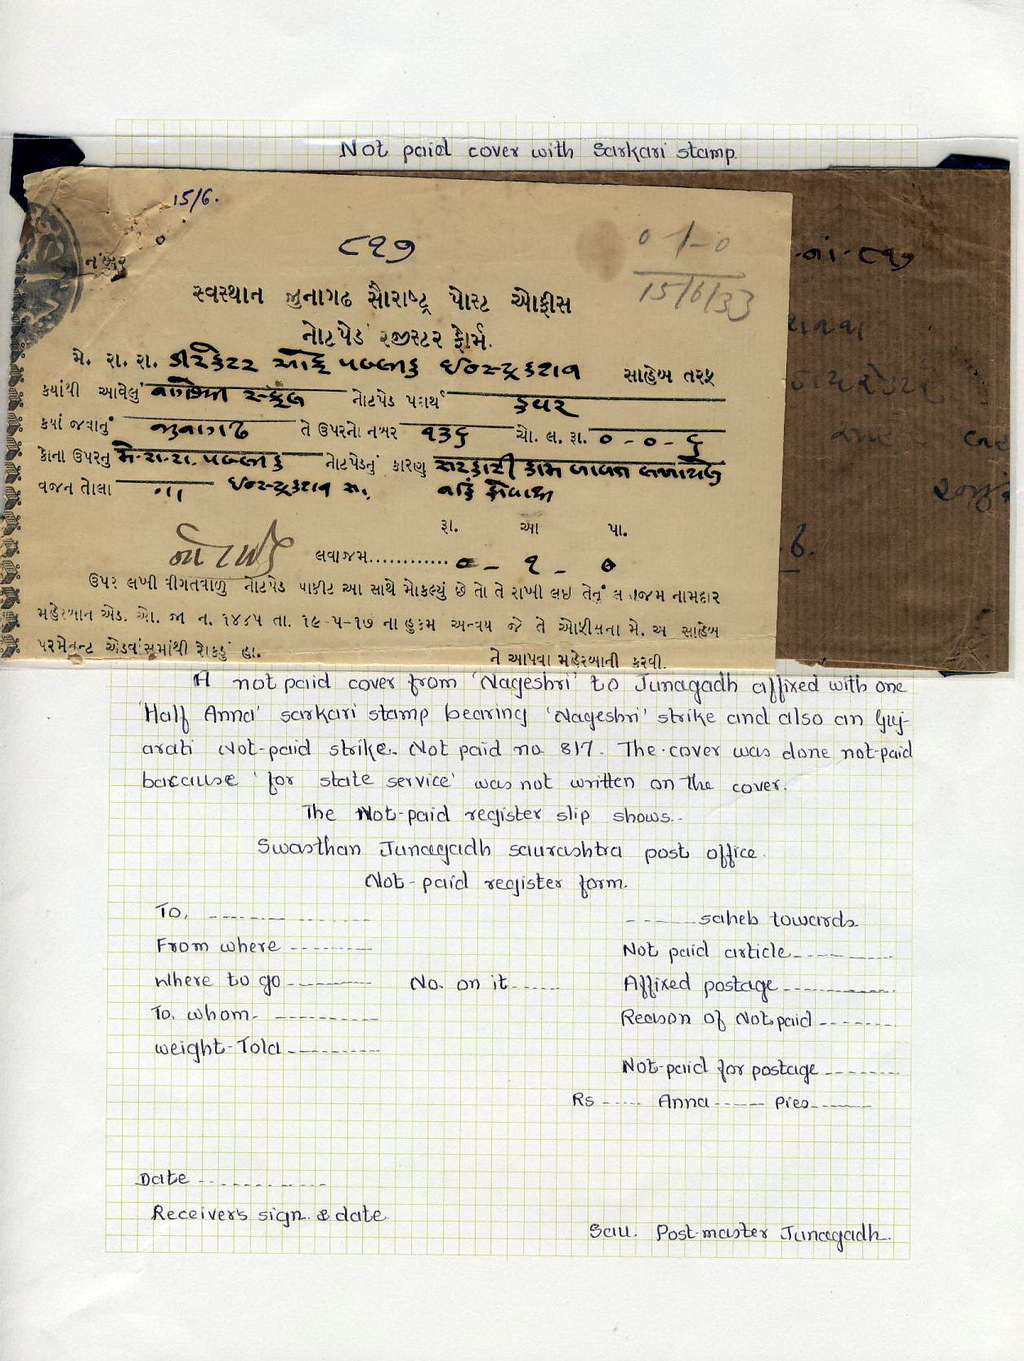 Not paid cover with Sarkari stamp.
15/6.
૮૧૭
0 1-0
15/6/33
નંબર
સ્વસ્થાન જીુનાગઢ સૌરાષ્ટ્ર પોસ્ટ ઓફીસ
નોટપેડ રજીસ્ટર ફોર્મ.
મે. રા. રા. ડીરેકટર ઓફ પબ્લીક ઇન્સ્ટ્રકશન સાહેબ તરફ
કયાંથી આવેલું સ્કુલ નોટપેડ પદાર્થ કવર
કયાં જવાનું જુનાગઢ તે ઉપરનો નંબર ૧૩૬ ચો. લ. રૂા. ૦-૦-૬
કોના ઉપરનું મે. રા. રા. પબ્લીક નોટપેડનું કારણ સરકારી કામ બાબત લખાયેલ
વજન તોલા ૦૫ ઇન્સ્ટ્રકશન સા. નહિ હોવાથી
રૂા. આ પા.
લવાજમ............ ૦ - ૧ - ૦
ઉપર લખી વીગતવાળું નોટપેડ પાકીટ આ સાથે મોકલ્યું છે તો તે રાખી લઇ તેનું લવાજમ નામદાર
મહેરબાન એડ. ઓ. જા ન. ૧૪૮૫ તા. ૧૯-૫-૧૭ ના હુકમ અન્વય જે તે ઓફીસના મે. અ સાહેબ
પરમેનન્ટ એડવાંસમાંથી રોકડું હા. ને આપવા મહેરબાની કરવી.
નાં-૮૧૭
A not paid cover from 'Nageshri' to Junagadh affixed with one
'Half Anna' sarkari stamp bearing 'Nageshri' strike and also an Guj-
arati Not-paid strike. Not paid no. 817. The cover was done not-paid
bacause 'for state service' was not written on the cover.
The Not-paid register slip shows.-
Swasthan Junagadh saurashtra post office.
Not-paid register form.
To, ------------ ------saheb towards
From where --------- Not paid article----------
Where to go--------- No. on it----- Affixed postage----------
To. whom. ---------- Reason of Not paid --------
weight-Tola ----------
Not-paid for postage --------
Rs ----- Anna ----- Pies------
Date ------------
Receiver's sign. & date.
Sau. Post-master Junagadh.